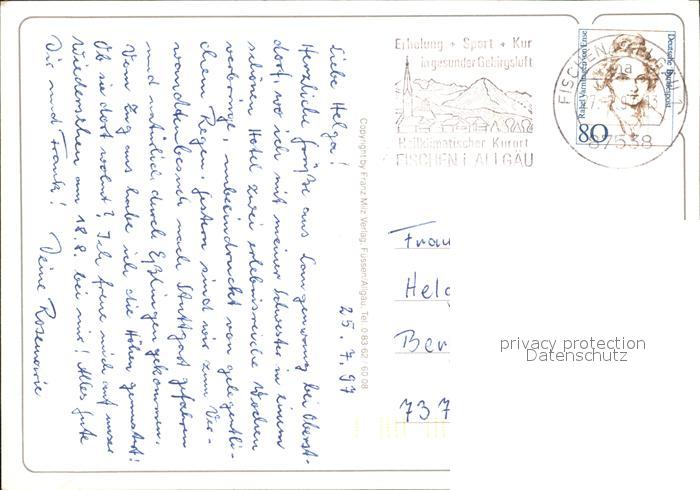 Liebe Helga!
Herzliche Grüße aus Langenwang bei Oberst-
dorf, wo ich mit meiner Schwester in einem
schönen Hotel zwei erlebnisreiche Wochen
verbringe, unbeeindruckt von gelegentli-
chen Regen. Gestern sind wir zum Ver-
wandtenbesuch nach Stuttgart gefahren
und natürlich durch Eßlingen gekommen.
Vom Zug aus habe ich die Höhen gemustert:
Ob sie dort wohnt? Ich freue mich auf unser
Wiedersehen am 18.8. bei mir! Alles Gute
Dir und Frank! Deine Rosemarie
25.7.97
Copyright by Franz Milz Verlag, Füssen/Allgäu Tel. 0 83 62 / 60 08
Erholung + Sport + Kur
in gesunder Gebirgsluft
Heilklimatischer Kurort
FISCHEN i. ALLGÄU
FISCHEN, ALLGÄU 1
87538
Rahel Varnhagen von Ense
Deutsche Bundespost
80
Frau
Helg
Ber
737
privacy protection
Datenschutz